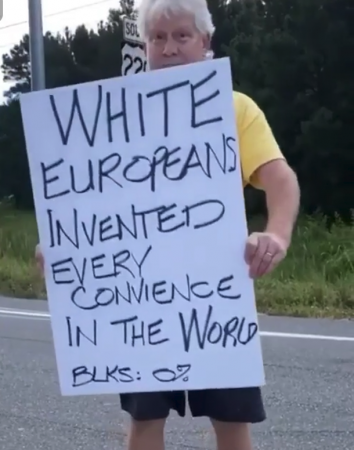 SOU
22
WHITE
EUROPEANS
INVENTED
EVERY
CONVIENCE
IN THE WORLD
BLKS: 0%